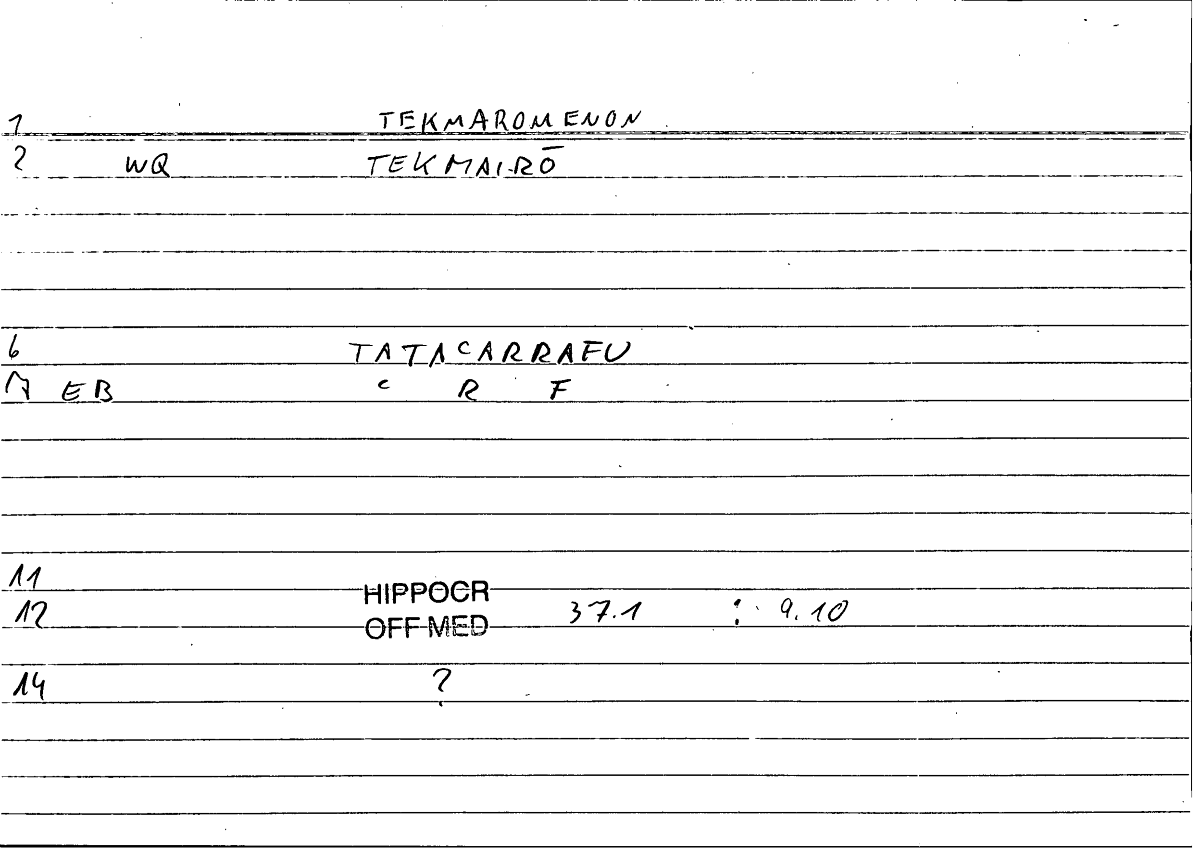 1 TEKMAROMENON
2 WQ TEKMAIRŌ
6 TATAcARRAFU
7 EB c R F
11
12 HIPPOCR OFF MED 37.1 : 9.10
14 ?